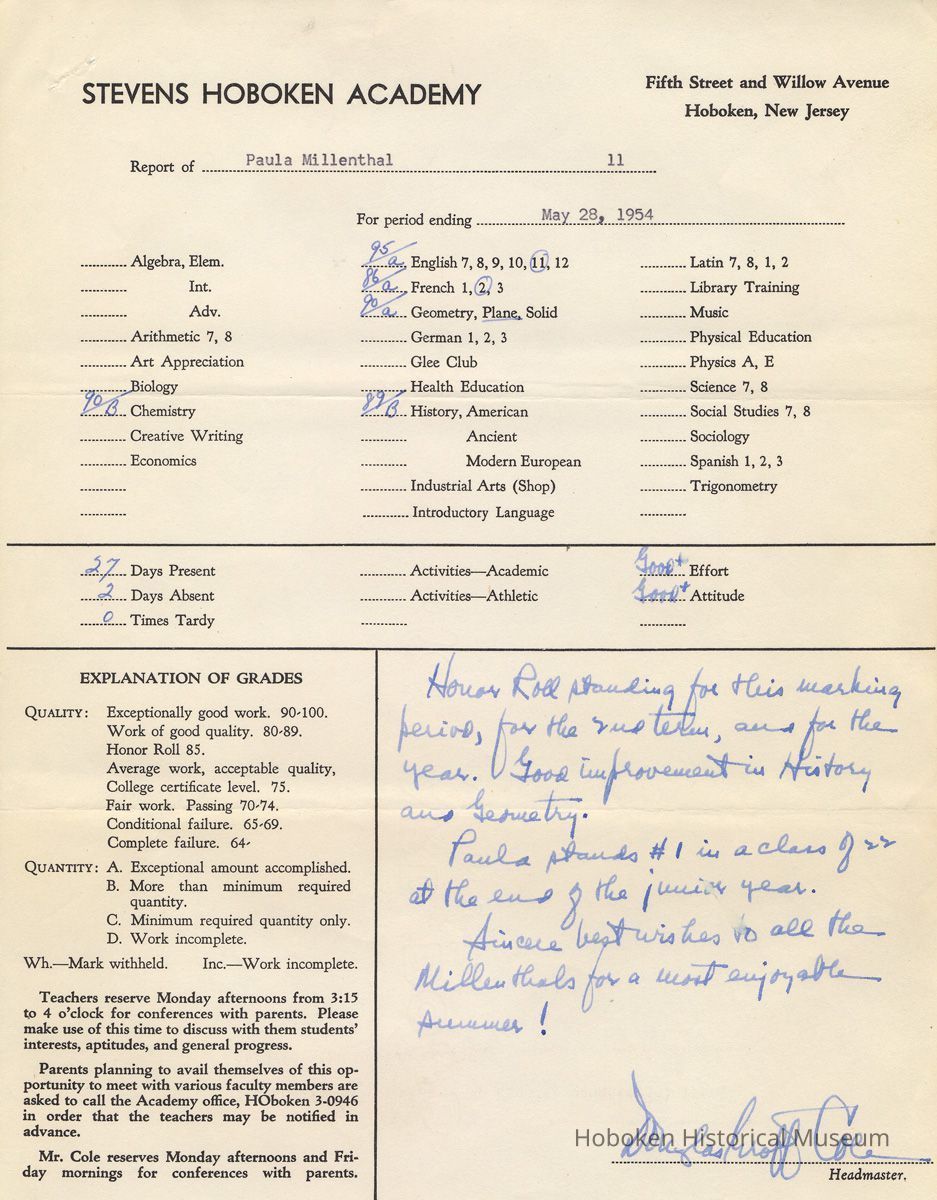 STEVENS HOBOKEN ACADEMY
Fifth Street and Willow Avenue
Hoboken, New Jersey
Report of Paula Millenthal 11
For period ending May 28, 1954
Algebra, Elem.
Int.
Adv.
Arithmetic 7, 8
Art Appreciation
Biology
90/B Chemistry
Creative Writing
Economics
95/a English 7, 8, 9, 10, 11, 12
86/a French 1, 2, 3
90/a Geometry, Plane, Solid
German 1, 2, 3
Glee Club
Health Education
89/B History, American
Ancient
Modern European
Industrial Arts (Shop)
Introductory Language
Latin 7, 8, 1, 2
Library Training
Music
Physical Education
Physics A, E
Science 7, 8
Social Studies 7, 8
Sociology
Spanish 1, 2, 3
Trigonometry
27 Days Present
2 Days Absent
0 Times Tardy
Activities—Academic
Activities—Athletic
Good+ Effort
Good+ Attitude
EXPLANATION OF GRADES
QUALITY: Exceptionally good work. 90-100.
Work of good quality. 80-89.
Honor Roll 85.
Average work, acceptable quality,
College certificate level. 75.
Fair work. Passing 70-74.
Conditional failure. 65-69.
Complete failure. 64-
QUANTITY: A. Exceptional amount accomplished.
B. More than minimum required
quantity.
C. Minimum required quantity only.
D. Work incomplete.
Wh.—Mark withheld. Inc.—Work incomplete.
Teachers reserve Monday afternoons from 3:15
to 4 o'clock for conferences with parents. Please
make use of this time to discuss with them students'
interests, aptitudes, and general progress.
Parents planning to avail themselves of this op-
portunity to meet with various faculty members are
asked to call the Academy office, HOboken 3-0946
in order that the teachers may be notified in
advance.
Mr. Cole reserves Monday afternoons and Fri-
day mornings for conferences with parents.
Honor Roll standing for this marking
period, for the 2nd term, and for the
year. Good improvement in History
and Geometry.
Paula stands #1 in a class of 22
at the end of the junior year.
Sincere best wishes to all the
Millenthals for a most enjoyable
summer!
Douglas Groff Cole
Headmaster.
Hoboken Historical Museum